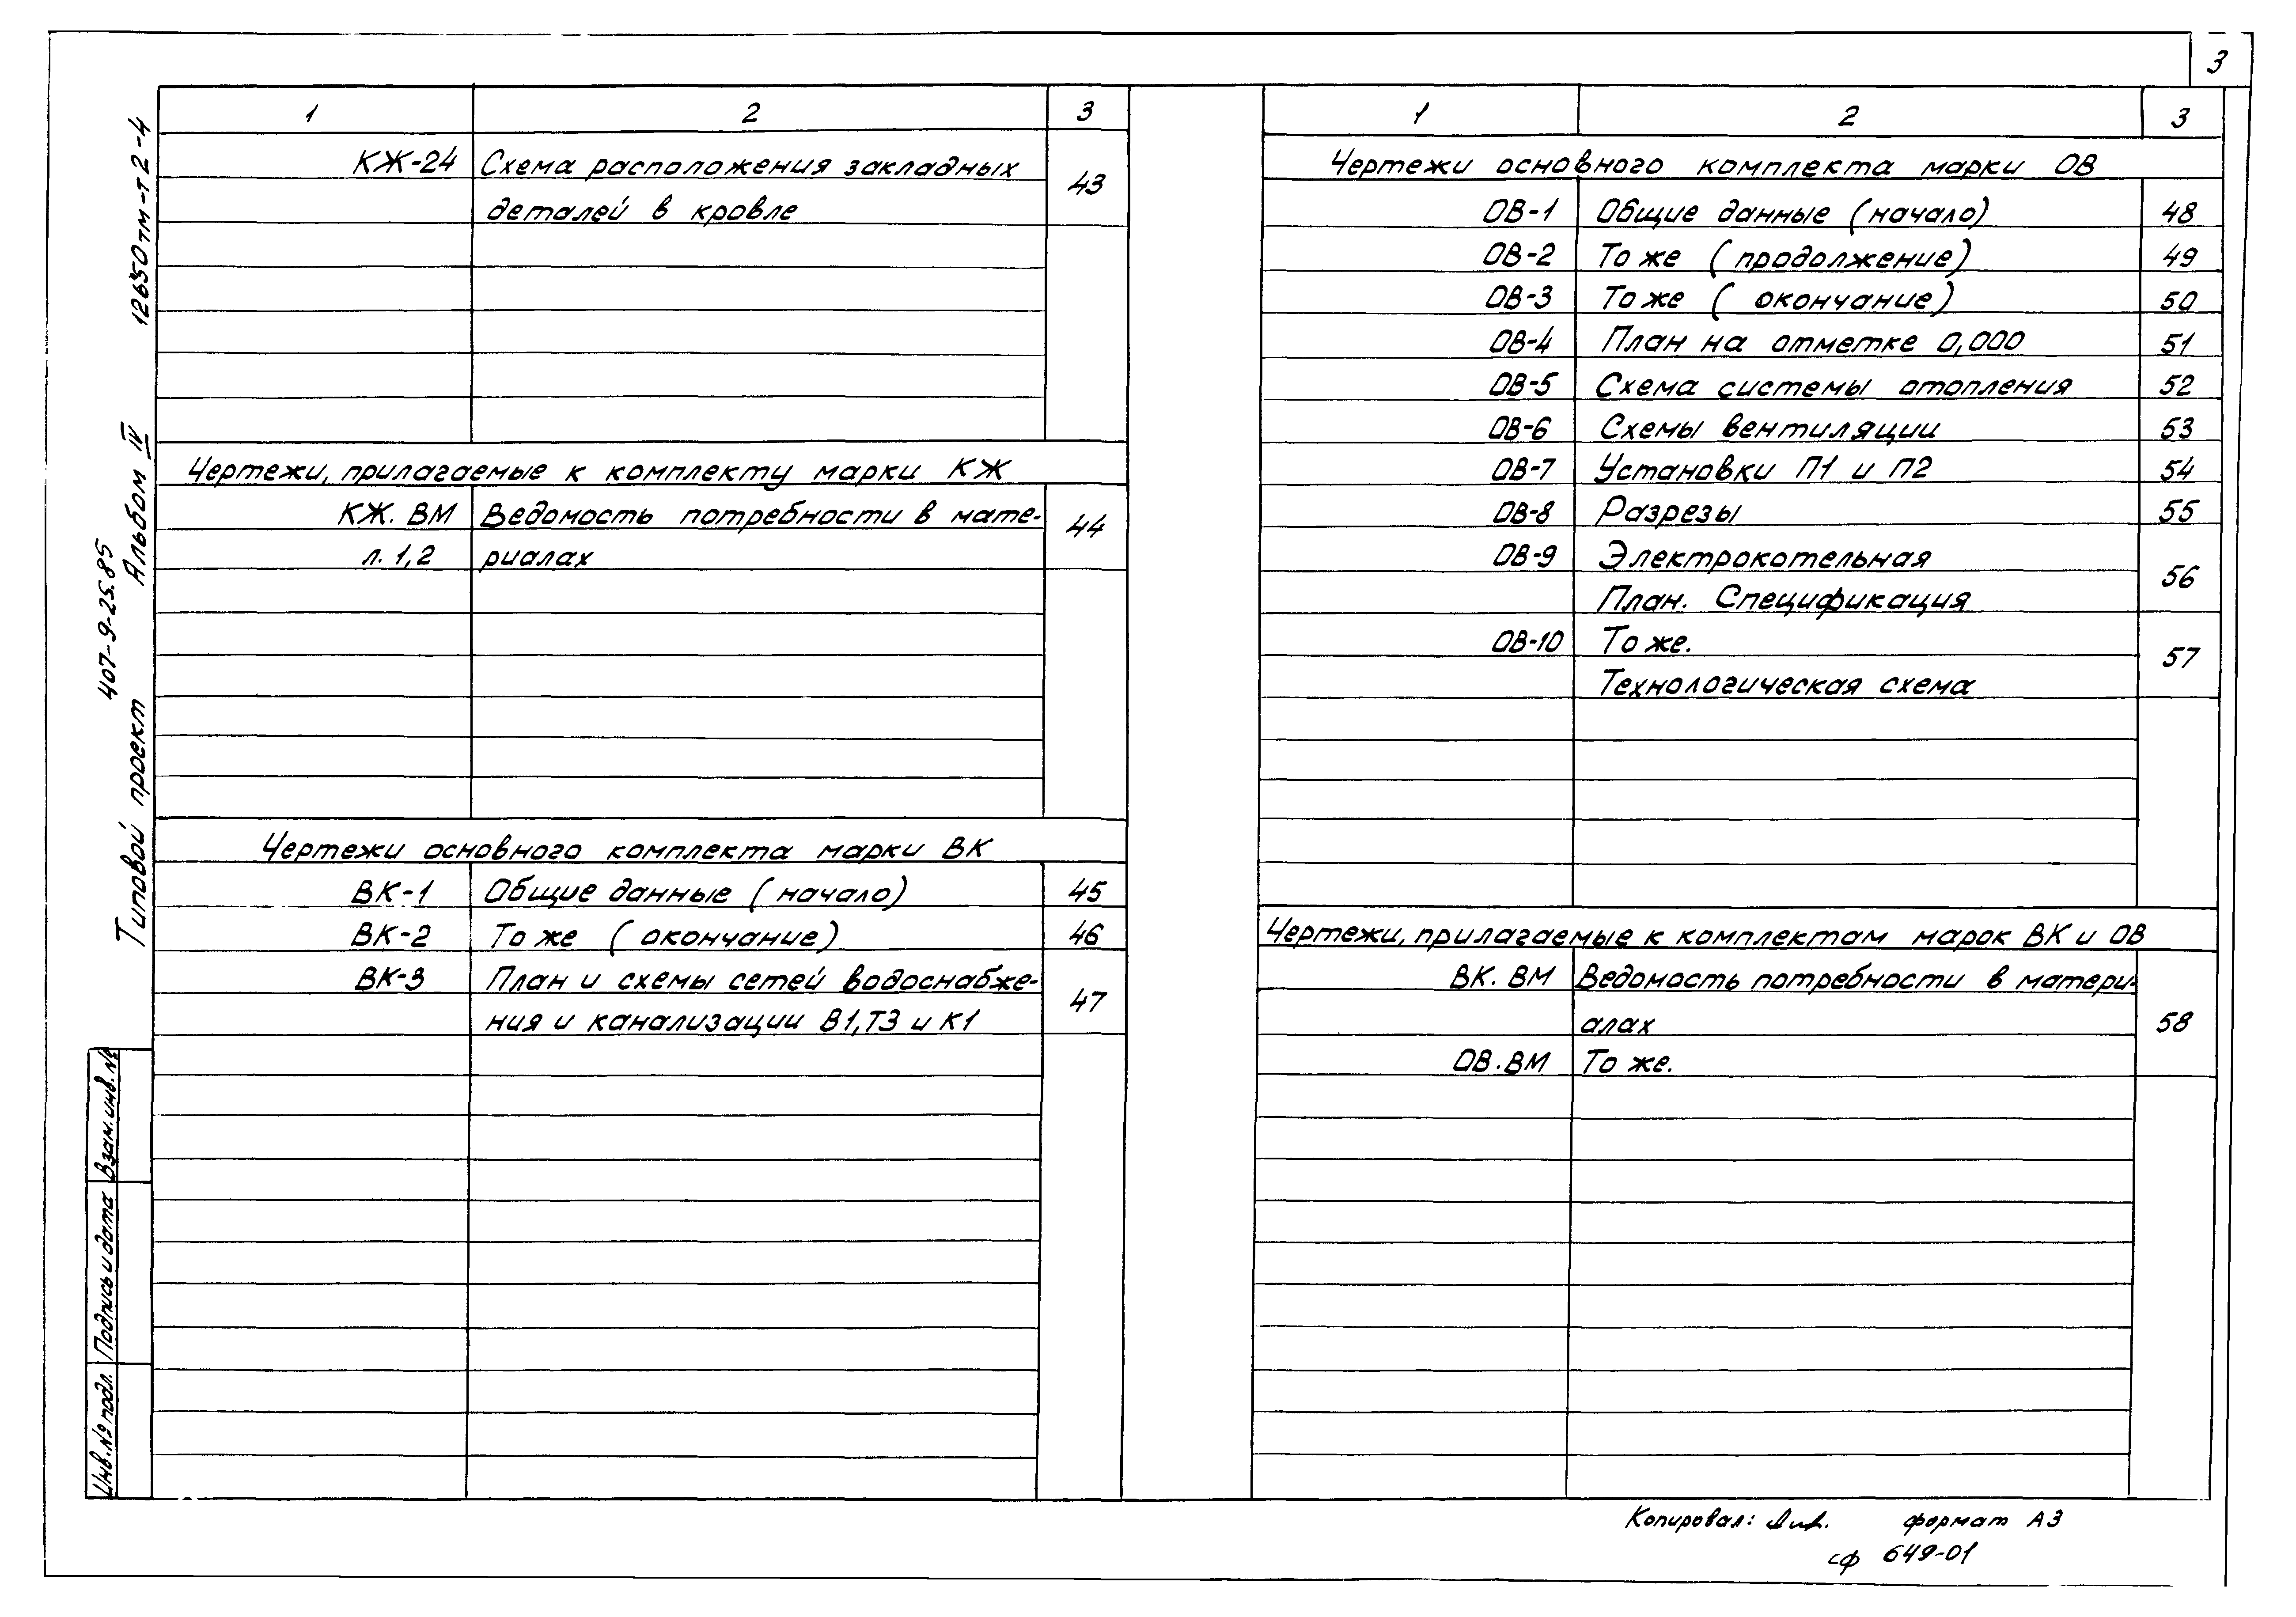 3
1 2 3
КЖ-24 Схема расположения закладных 43
деталей в кровле
Чертежи, прилагаемые к комплекту марки КЖ
КЖ. ВМ Ведомость потребности в мате- 44
л. 1,2 риалах
Чертежи основного комплекта марки ВК
ВК-1 Общие данные (начало) 45
ВК-2 То же (окончание) 46
ВК-3 План и схемы сетей водоснабже- 47
ния и канализации В1,Т3 и К1
1 2 3
Чертежи основного комплекта марки ОВ
ОВ-1 Общие данные (начало) 48
ОВ-2 То же (продолжение) 49
ОВ-3 То же (окончание) 50
ОВ-4 План на отметке 0,000 51
ОВ-5 Схема системы отопления 52
ОВ-6 Схемы вентиляции 53
ОВ-7 Установки П1 и П2 54
ОВ-8 Разрезы 55
ОВ-9 Электрокотельная 56
План. Спецификация
ОВ-10 То же. 57
Технологическая схема
Чертежи, прилагаемые к комплектам марок ВК и ОВ
ВК. ВМ Ведомость потребности в матери- 58
алах
ОВ.ВМ То же.
Типовой проект 407-9-25.85 Альбом IV 12650тм-т2-4
Инв.№ подл. Подпись и дата Взам.инв.№
Копировал: формат А3
сф 649-01